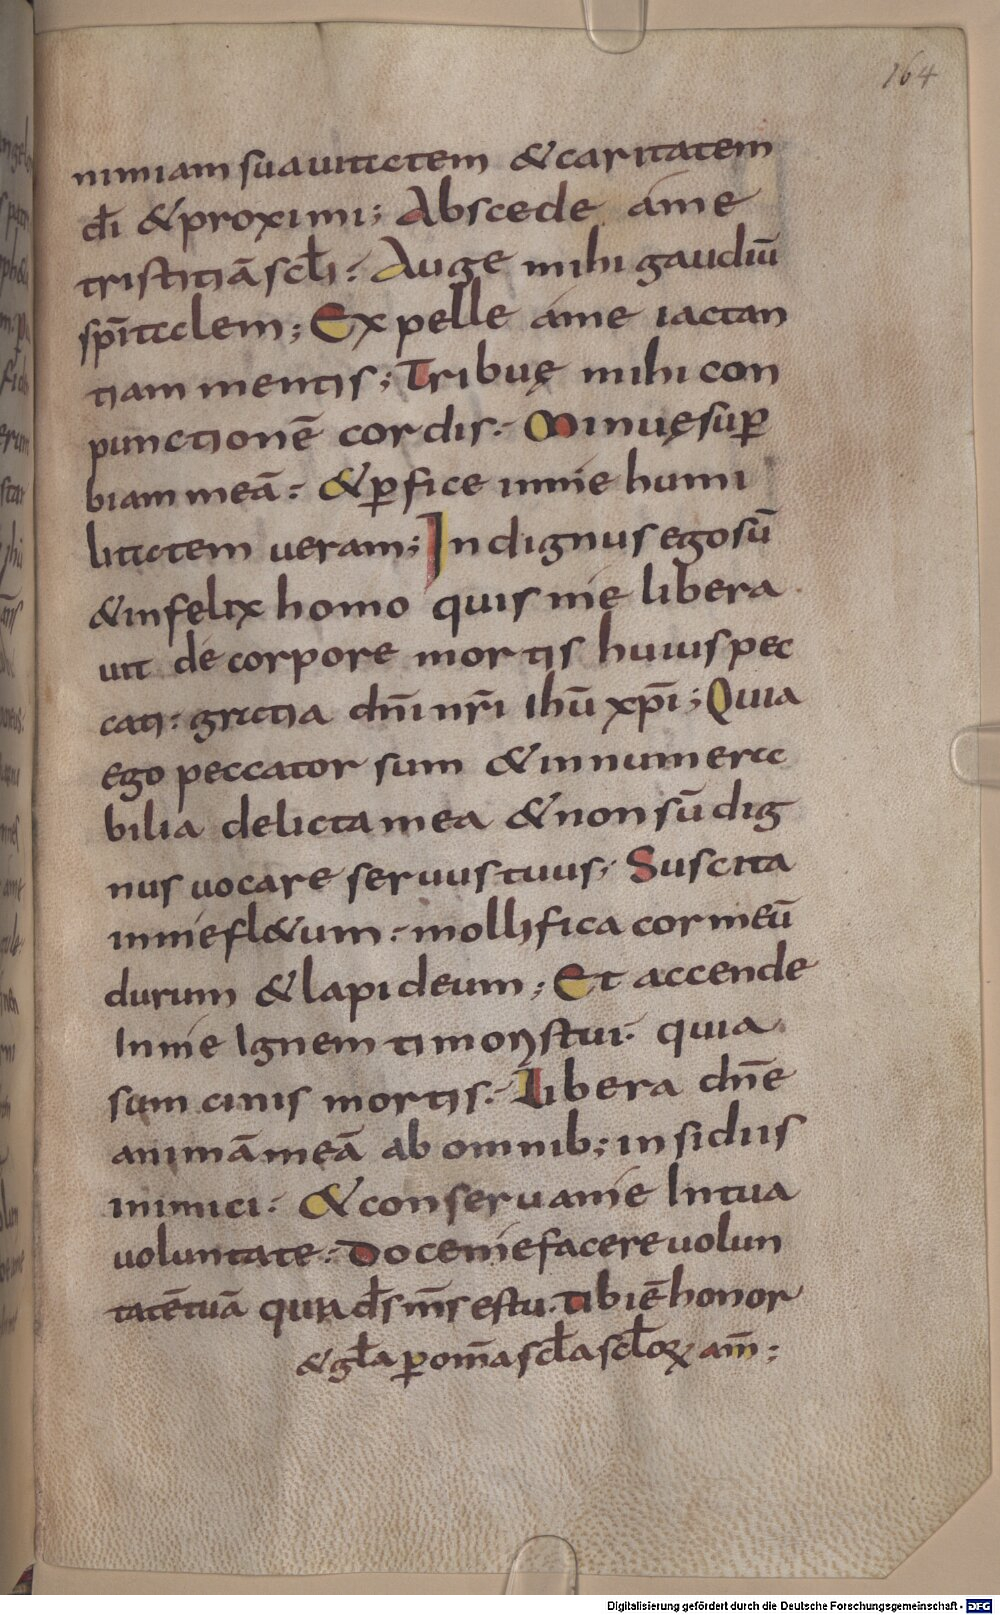 164
nimiam suauitatem & caritatem
dī & proximi; Abscede a me
tristitiā scłi: Auge mihi gaudiū
spītalem; Expelle a me iactan
tiam mentis; Tribuę mihi con
punctionē cordis: Minuę sup̱
biam meā: & p̱fice in me humi
litatem ueram; Indignus ego sū
& infelix homo quis me libera
uit de corpore mortis huius pec
cati: gratia dn̄i nr̄i ihū xp̄i; Quia
ego peccator sum & innumera
bilia delicta mea & non sū dig
nus uocare seruus tuus; Suscita
in me fl&um: mollifica cor meū
durum & lapideum; Et accende
In me Ignem timoris tui. quia
sum cinis mortis: Libera dn̄e
animā meā ab omnib; insidiis
inimici: & conserua me In tua
uoluntate: Doce me facere uolun
tatē tuā quia ds̄ ms̄ es tu. tibi ē honor
& gła p̱ om̄a scła scłoꝝ am̄;
Digitalisierung gefördert durch die Deutsche Forschungsgemeinschaft - DFG